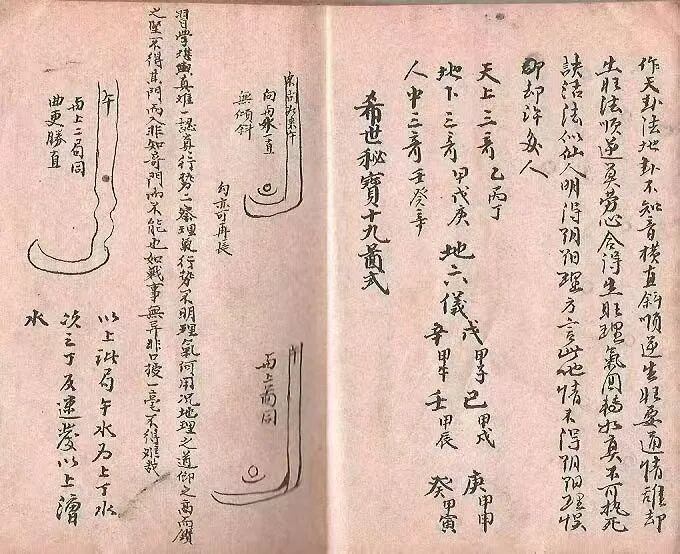 作天卦法地卦不知音橫直斜順逆生旺要通情誰却
生旺法順逆莫勞心合得生旺理氣圓橋如真不可執死
訣活法似仙人明得陰陽理方言此地情不得陰陽理悞
却許多人
天上三奇乙丙丁
地下三奇甲戊庚
人中三奇壬癸辛
地六儀
戊甲子
己甲戌
庚甲申
辛甲午
壬甲辰
癸甲寅
希世秘寶十九啚式
向丙水一直
無傾斜
勾亦可再長
午
丙上啚同
習學堪輿真難一認真行勢二察理氣行勢不明理氣何用况地理之道仰之高而鑽
之堅不得其門而入非知奇門而不能也如戰事無異非口授一毫不得難哉
午
丙上二局同
曲更勝直
以上訣局午水为上丁水
次之丁反速發以上漕
水